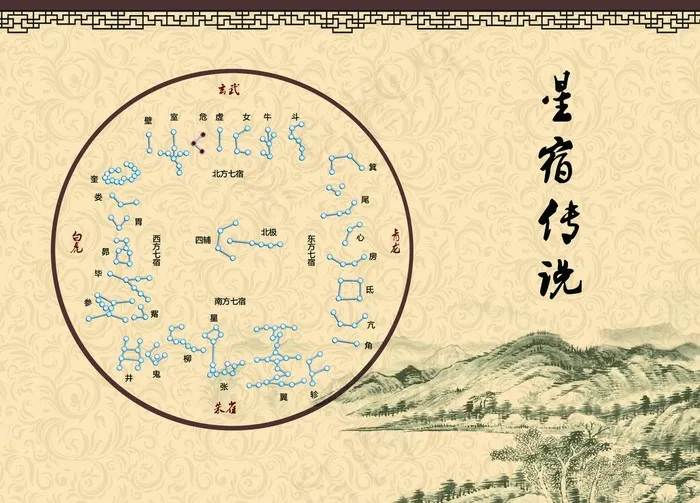 星宿传说
玄武
壁 室 危 虚 女 牛 斗
北方七宿
箕
尾
心
房
氐
亢
角
青龙
东方七宿
奎
娄
胃
昴
毕
参
觜
白虎
西方七宿
四辅
北极
南方七宿
井
鬼
柳
星
张
翼
轸
朱雀